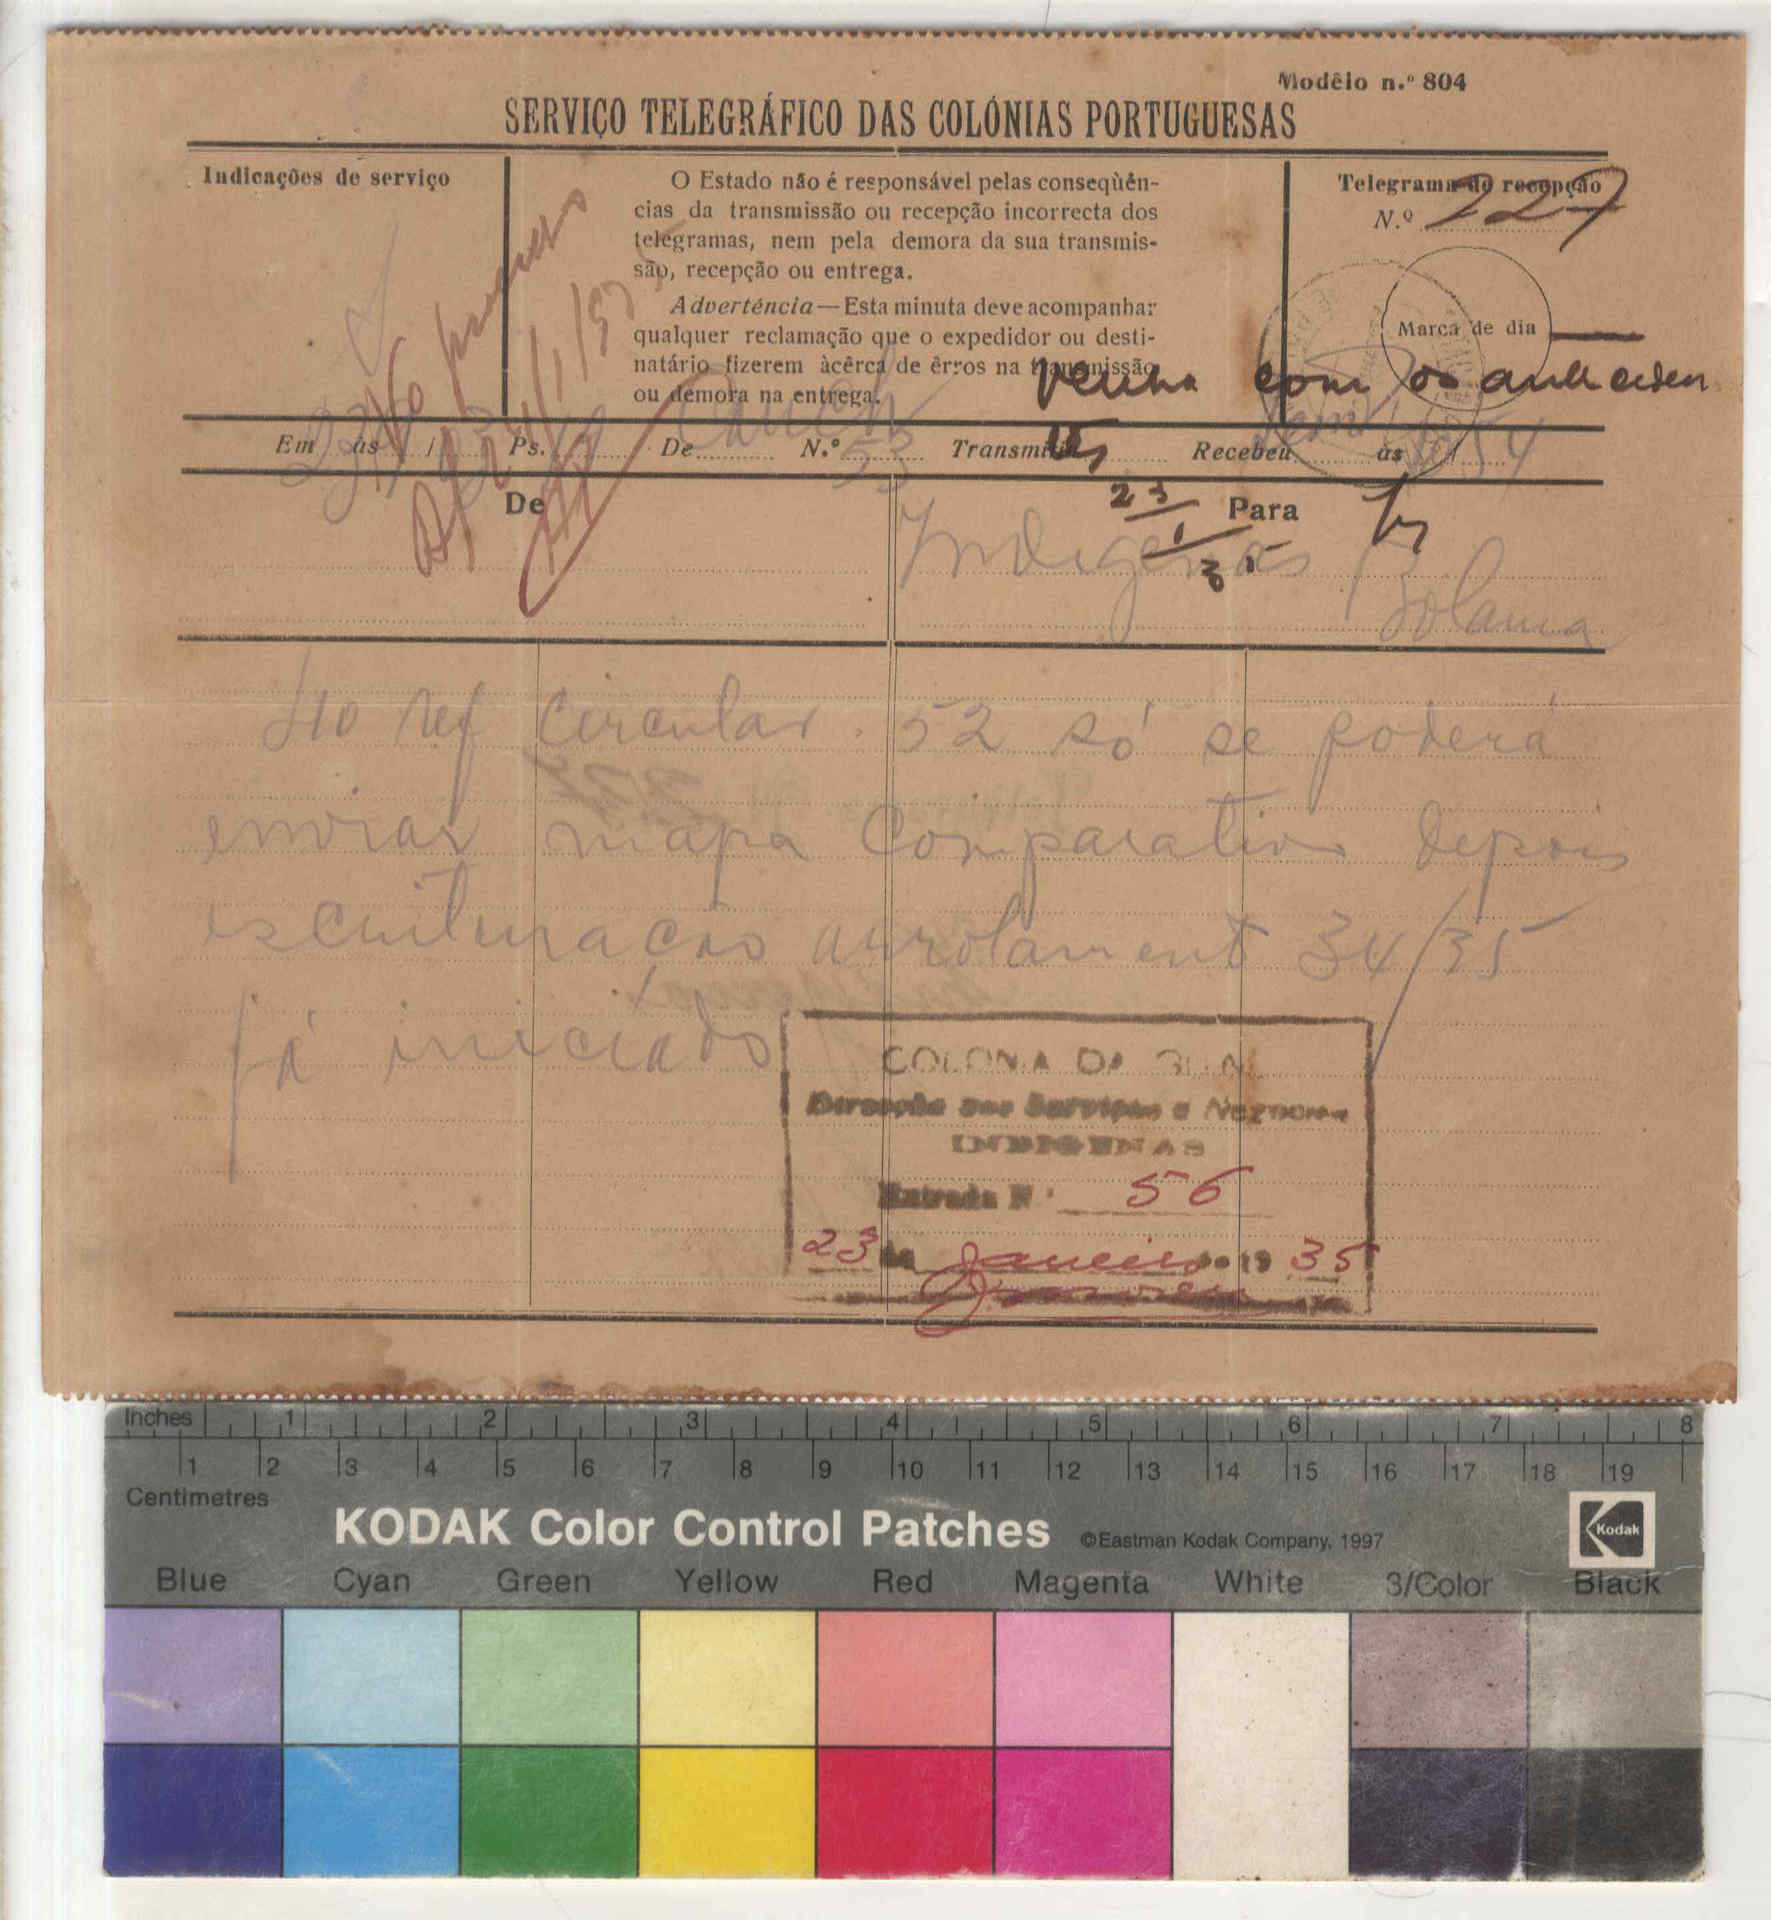 Modêlo n.º 804
SERVIÇO TELEGRÁFICO DAS COLÓNIAS PORTUGUESAS
Indicações de serviço
O Estado não é responsável pelas conseqùên-
cias da transmissão ou recepção incorrecta dos
telegramas, nem pela demora da sua transmis-
são, recepção ou entrega.
Advertência—Esta minuta deve acompanhar
qualquer reclamação que o expedidor ou desti-
natário fizerem àcêrca de êrros na transmissão
ou demora na entrega.
Telegrama de recepção
N.º 227
Marca de dia
Ao processo
24/1/935
Venha com os anteceden
tes
23
1
35
Em às / Ps. De N.º 53 Transmitiu Recebeu às / 54
De
Para
Indigenas
Bolama
410 ref circular. 52 só se poderá
enviar mapa comparativo depois
escrituração arrolamento 34/35
já iniciado
COLONIA DA GUINÉ
Direcção dos Serviços e Negocios
INDIGENAS
Entrada N.º 56
23 de Janeiro de 19 35
Inches 1 2 3 4 5 6 7 8
1 2 3 4 5 6 7 8 9 10 11 12 13 14 15 16 17 18 19
Centimetres
KODAK Color Control Patches ©Eastman Kodak Company, 1997 Kodak
Blue Cyan Green Yellow Red Magenta White 3/Color Black